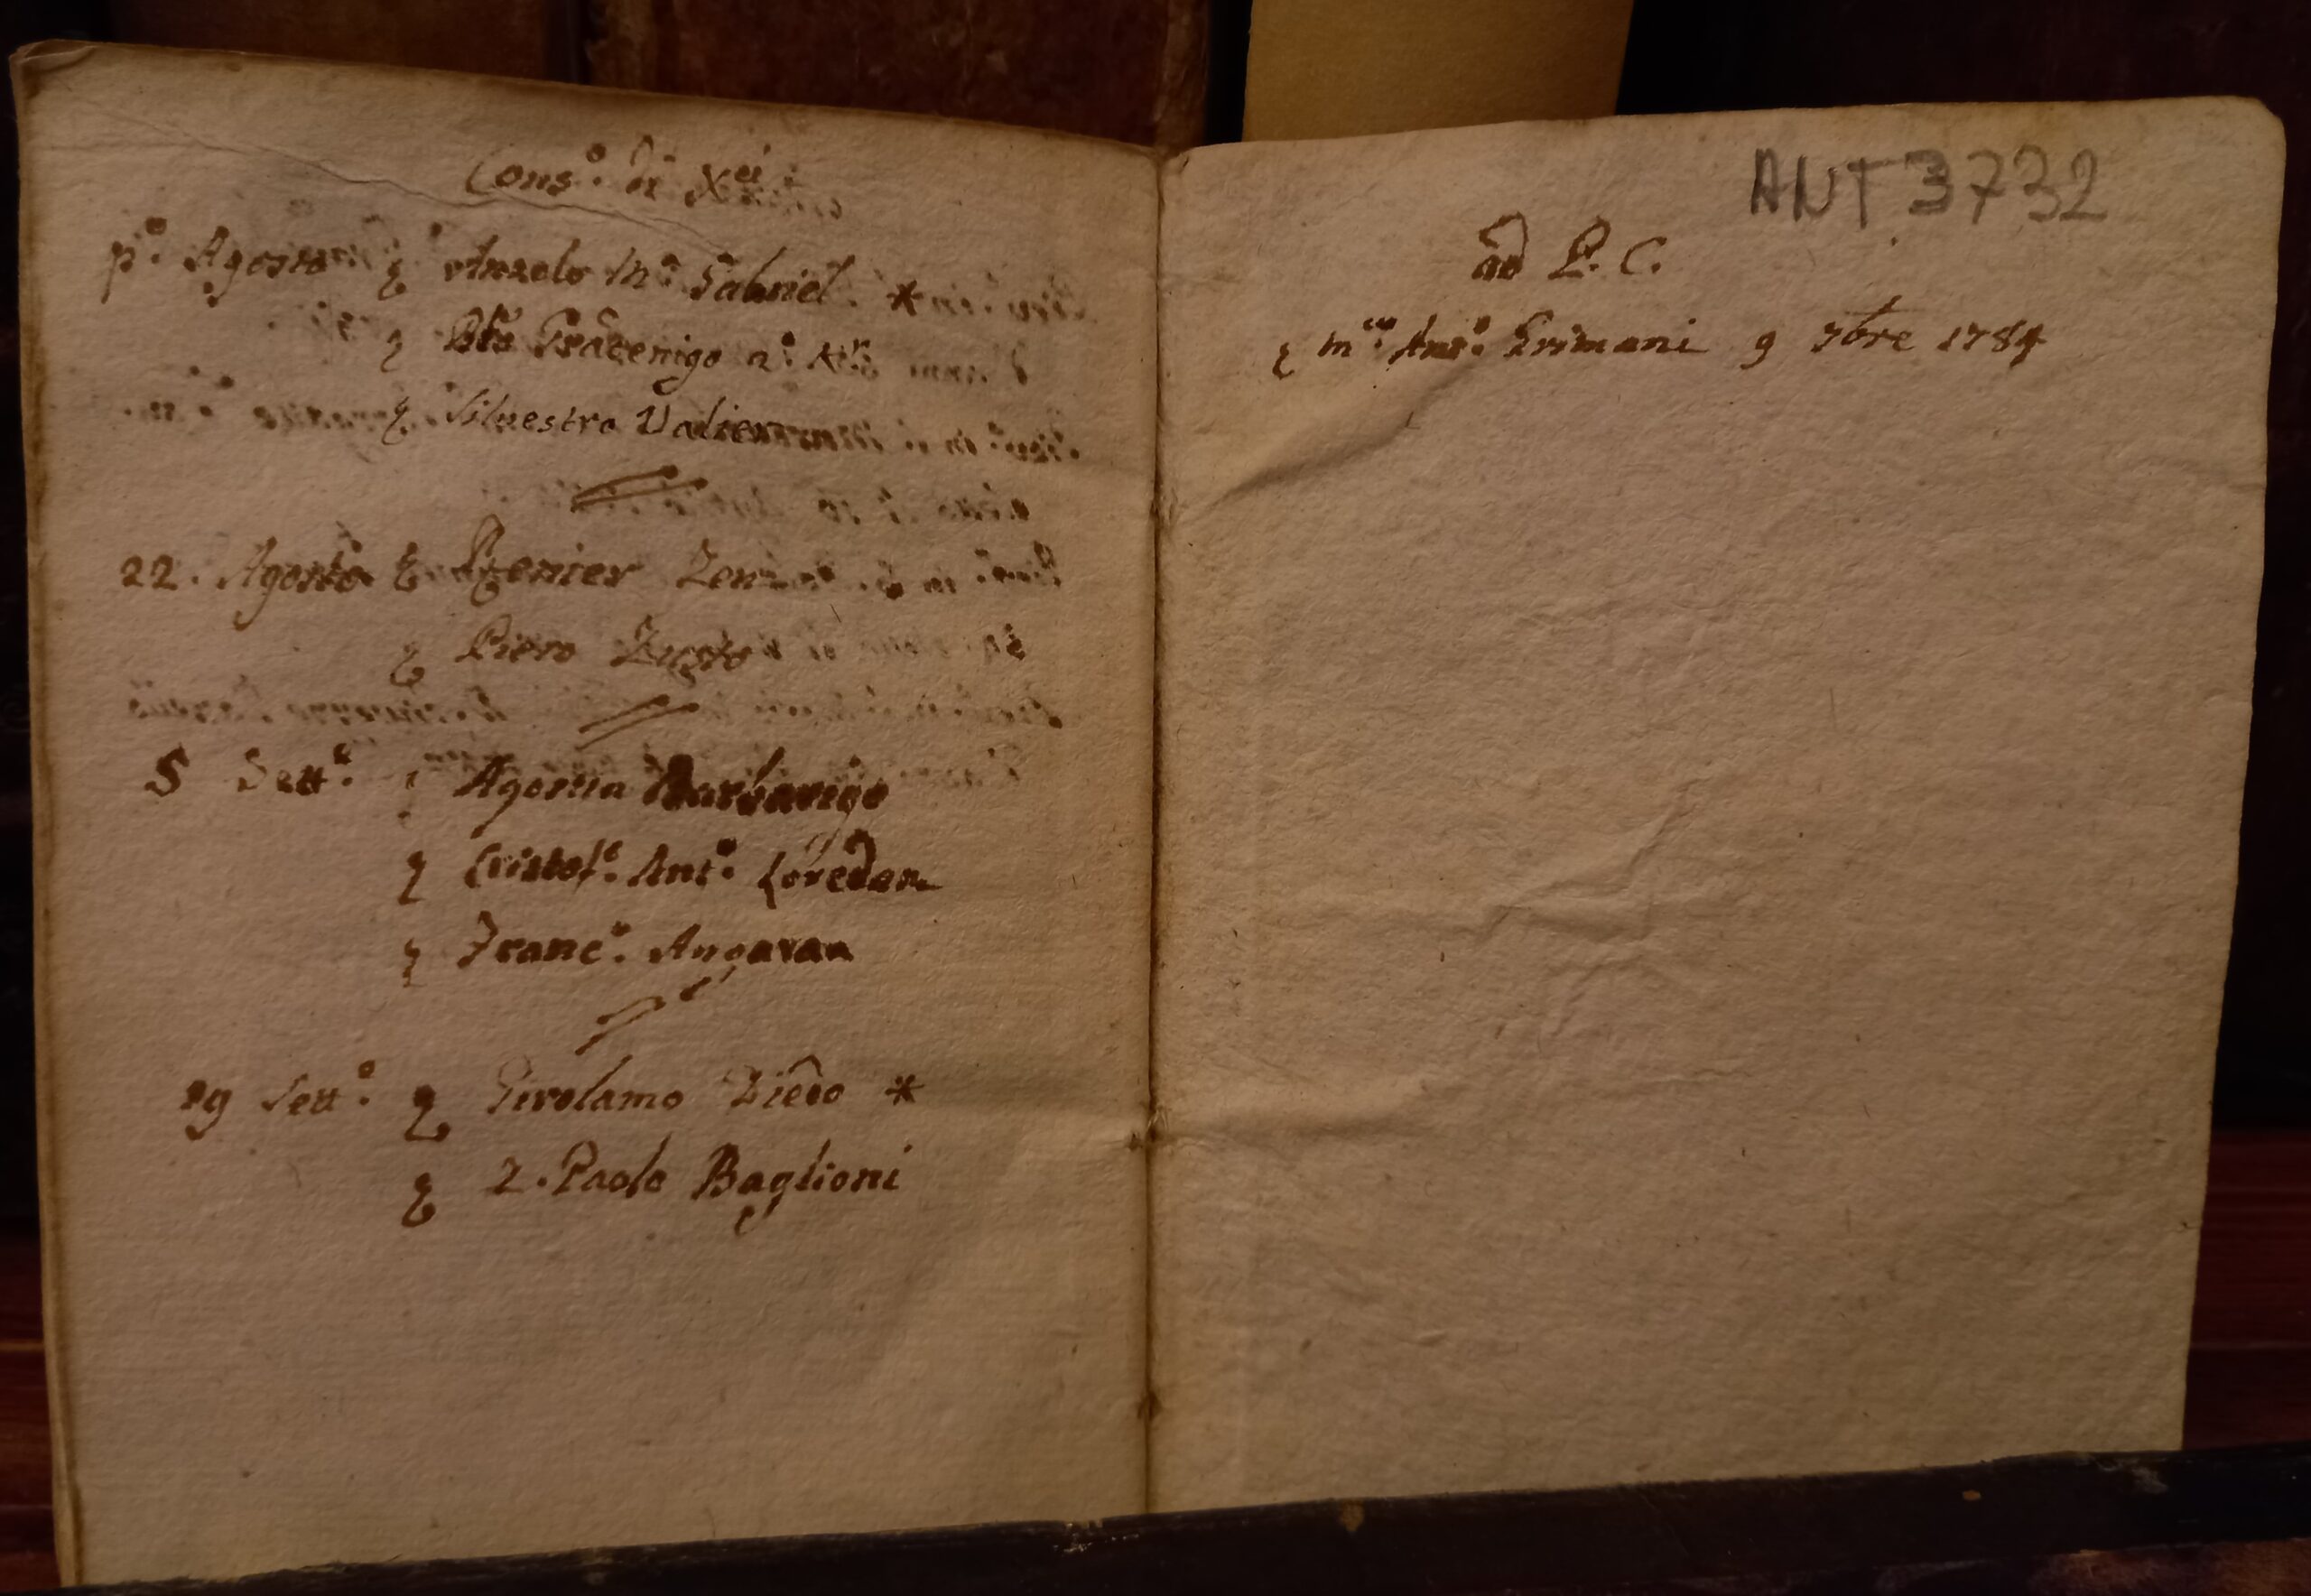 Cons.º di Xci
p.º Agosto ꝑ Anzolo M.ª Gabriel. *
ꝑ a.º K.r
ꝑ Silvestro Valier
22. Agosto ꝑ Renier Zen
ꝑ Piero Zusto
5 Sett.e ꝑ Agostin Barbarigo
ꝑ Cristof.º Ant.º Loredan
ꝑ Franc.º Angaran
19 Sett.e ꝑ Girolamo Diedo *
ꝑ Z. Paolo Baglioni
ANT 3732
ad P. C.
ꝑ m.co Ant.º Grimani 9 7bre 1784